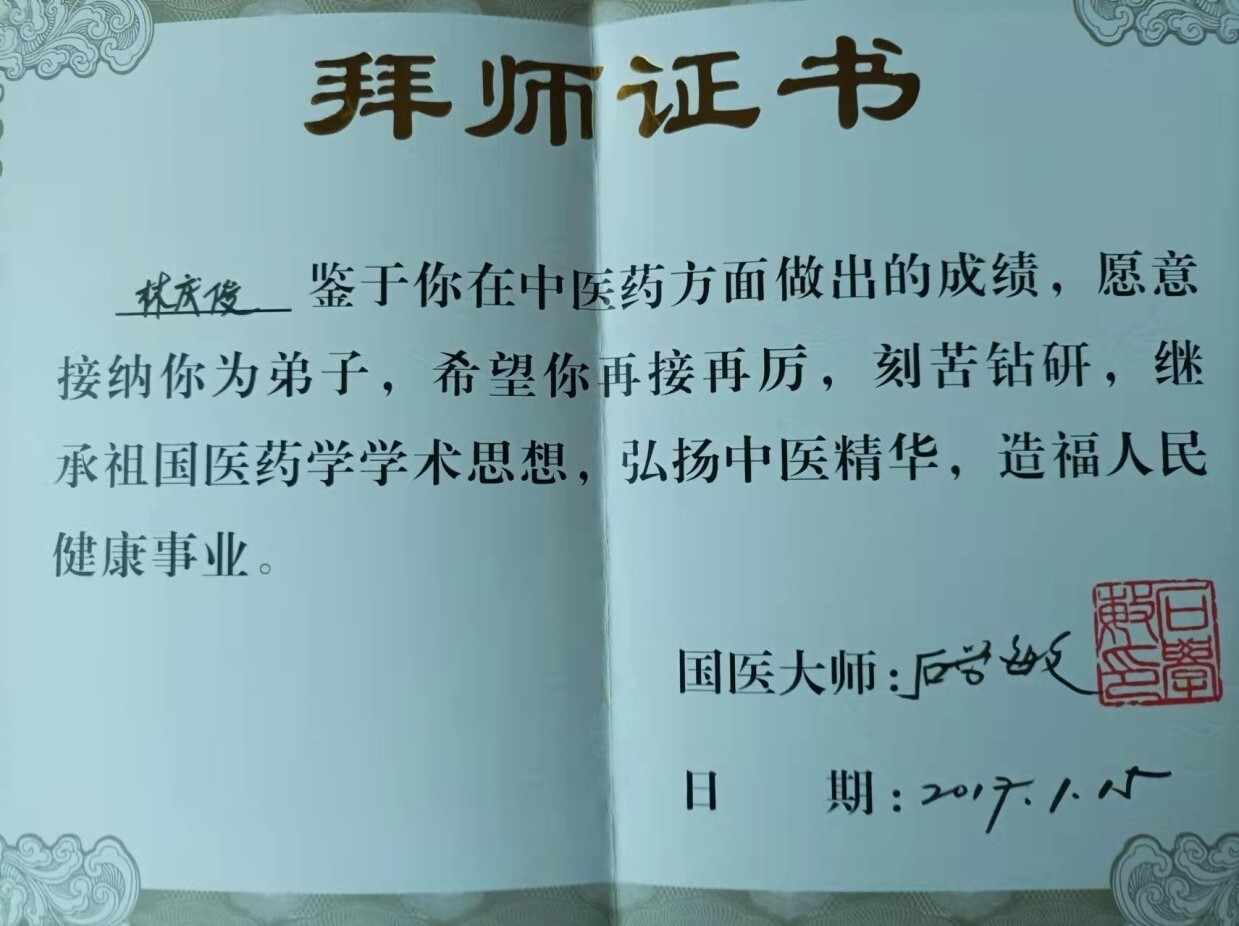 拜师证书
林成俊 鉴于你在中医药方面做出的成绩，愿意
接纳你为弟子，希望你再接再厉，刻苦钻研，继
承祖国医药学学术思想，弘扬中医精华，造福人民
健康事业。
国医大师：石学敏
石學敏印
日 期：2017.1.15